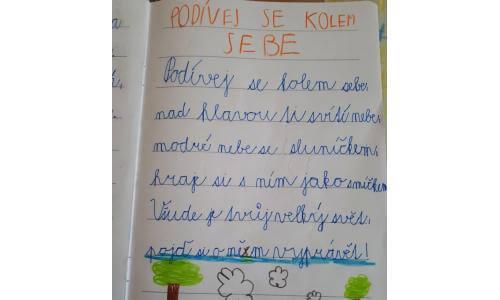 PODÍVEJ SE KOLEM
SEBE
Podívej se kolem sebe,
nad hlavou ti svítí nebe,
modré nebe se sluníčkem,
hraj si s ním jako smíčkem
Všude je tvůj velký svět,
pojď si o něm vyprávět!